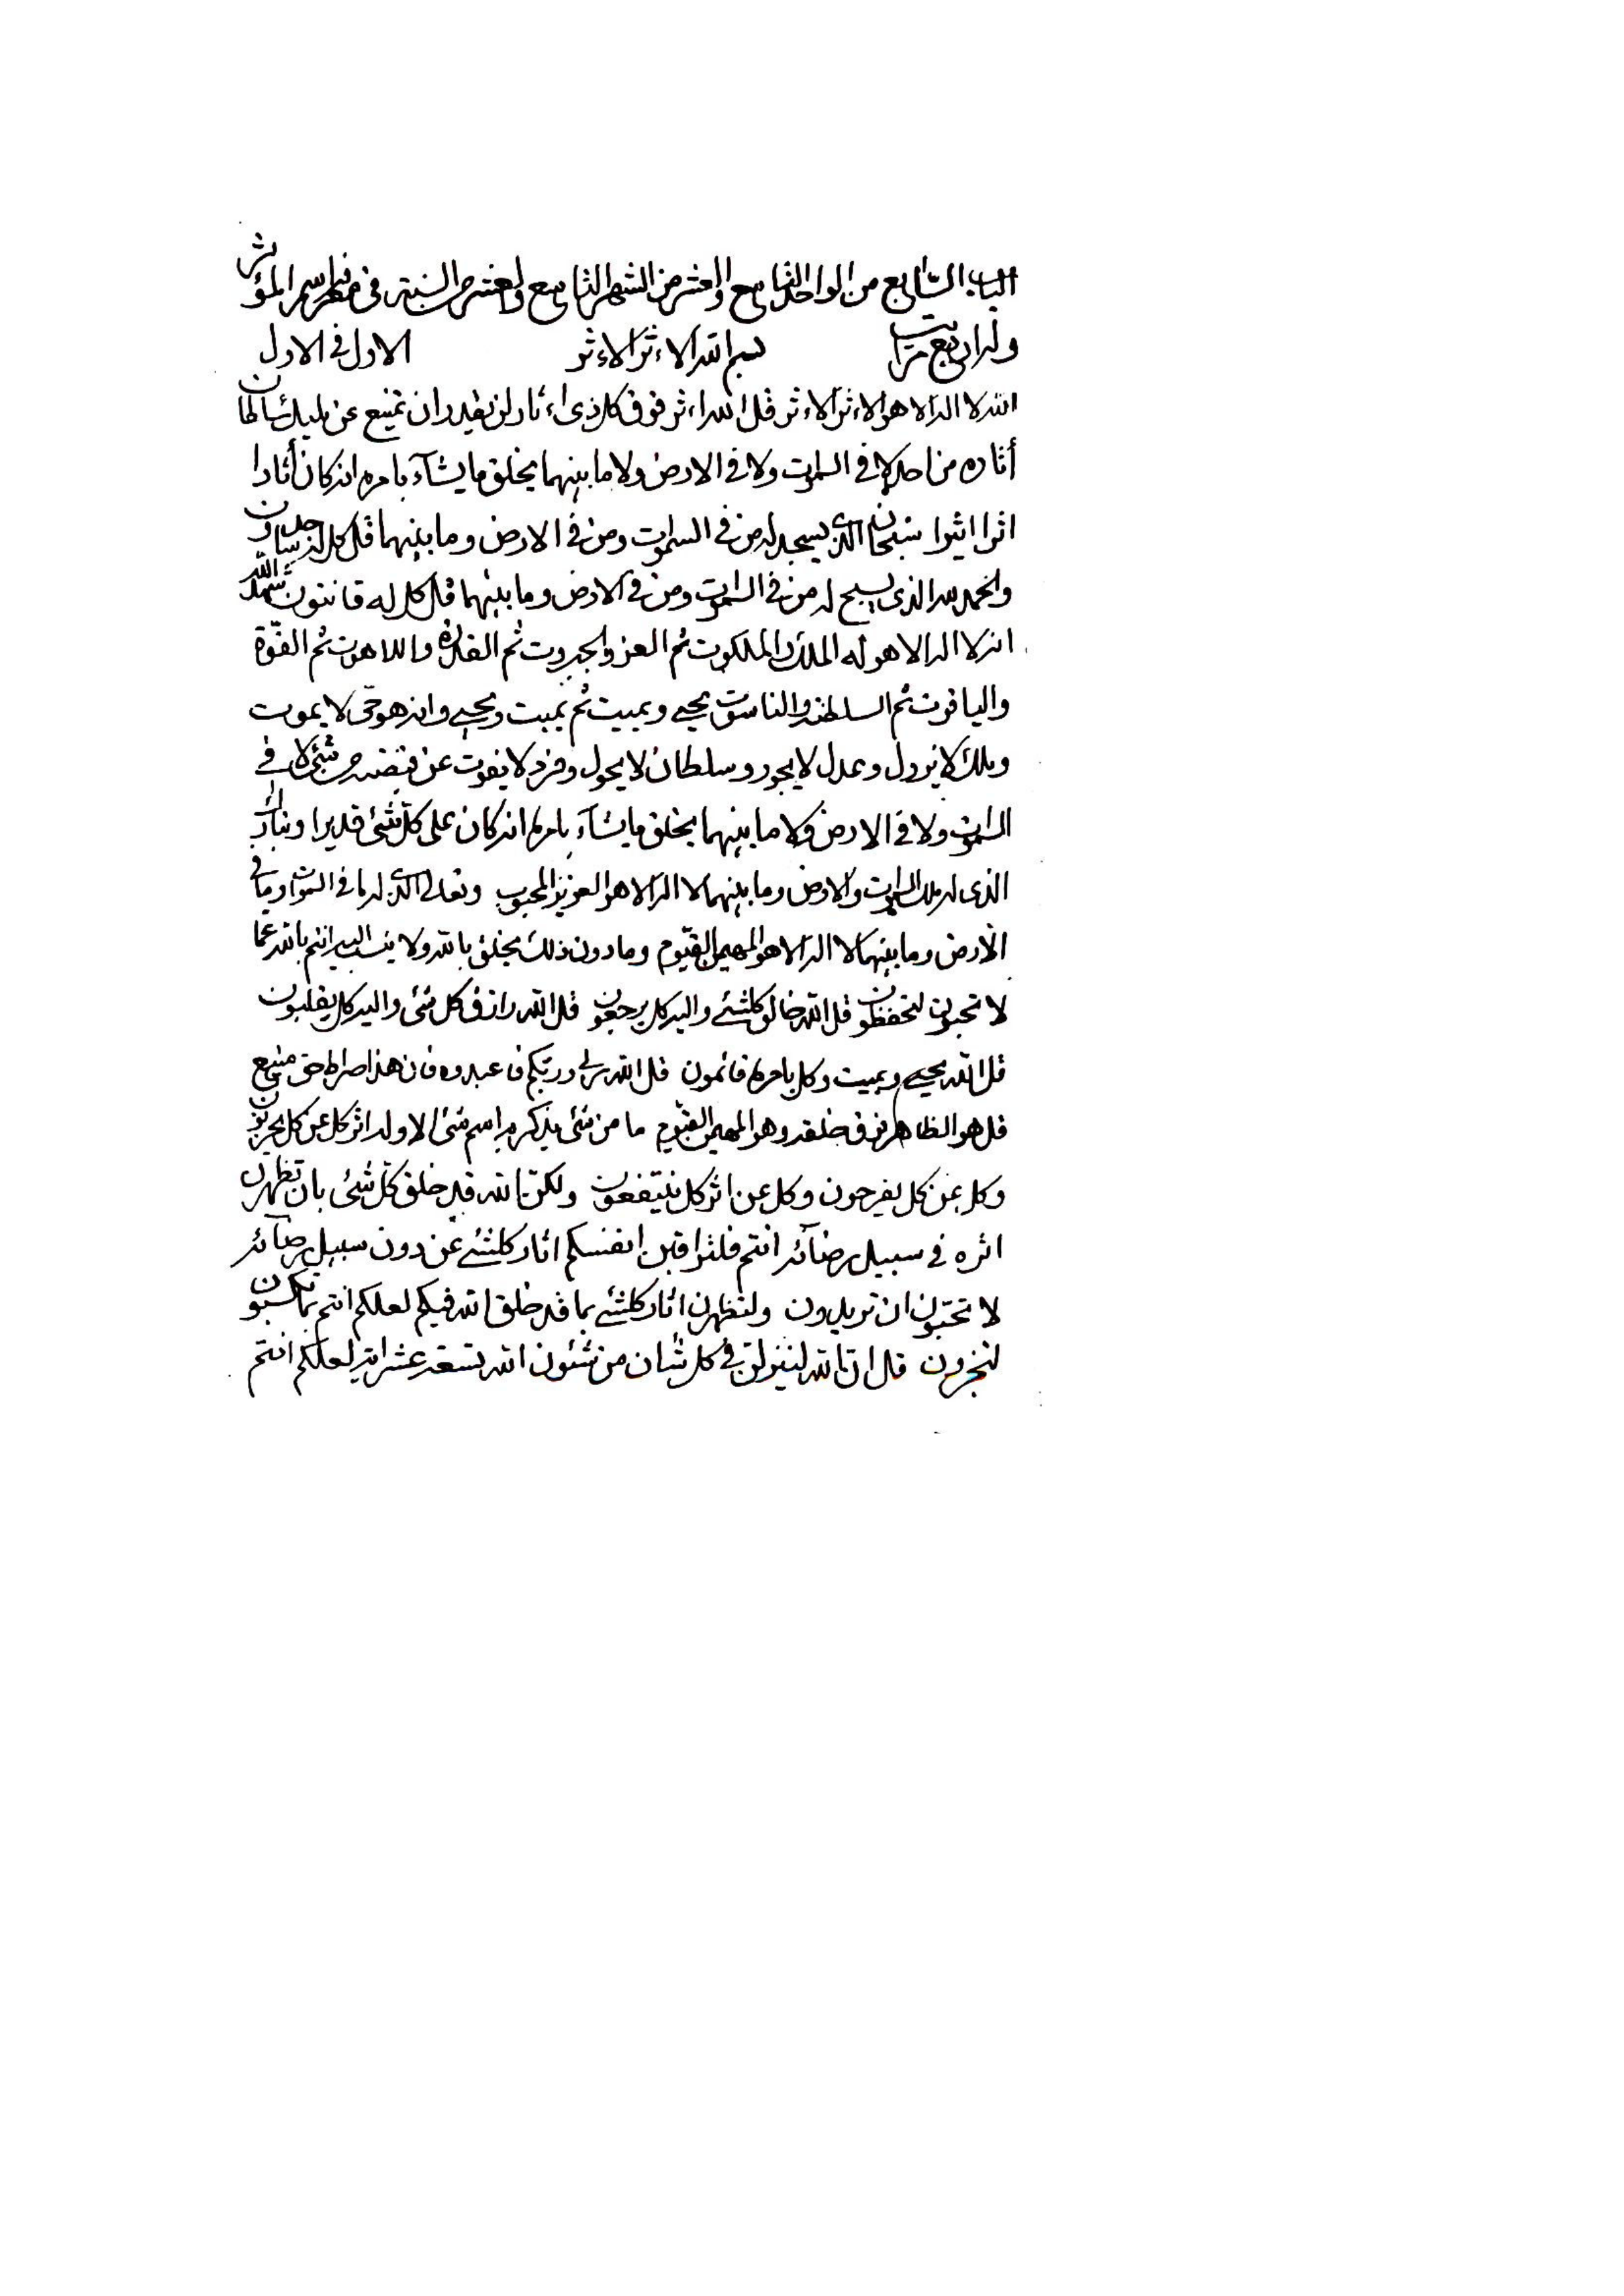 الباب السابع من الواحد التاسع والعشر من الشهر التاسع والعشر من السنة فى معرفة اسم المؤثر
وله اربع مراتب بسم الله الاءثر الاءثر الاول فى الاول
الله لا اله الا هو الاءثر الاءثر قل الله اءثر فوق كل ذى اءثار لن يقدر ان يمتنع عن مليك سلطان
أثاره من احد لا فى السموات ولا فى الارض ولا ما بينهما يخلق ما يشآء بامره انه كان أثارا
اثرا اثيرا سبحان الذى يسجد له من فى السموات ومن فى الارض وما بينهما قل كل له ساجدون
والحمد لله الذى يسبح له من فى السموات ومن فى الارض وما بينهما قل كل له قانتون شهد الله
انه لا اله الا هو له الملك والملكوت ثم العز والجبروت ثم القدرة واللاهوت ثم القوّة
والياقوت ثم السلطنة والناسوت يحيى ويميت ثم يميت ويحيى وانه هو حىّ لا يموت
وملك لا يزول وعدل لا يجور وسلطان لا يحول وفرد لا يفوت عن قبضته من شئ لا فى
السموات ولا فى الارض ولا ما بينهما يخلق ما يشآء بامره انه كان على كلّ شئ قديرا وتبارك
الذى له ملك السموات والارض وما بينهما لا اله الا هو العزيز المحبوب وتعالى الذى له ما فى السموات وما فى
الارض وما بينهما لا اله الا هو المهيمن القيّوم وما دون ذلك يخلق بالله ولا ينسب اليه انتم بالله عما
لا تحبون لتحفظون قل الله خالق كلشئ واليه كل يرجعون قل الله رازق كل شئ واليه كل يقلبون
قل الله يحيى ويميت وكل بامره قائمون قل الله ربى وربكم فاعبدوه فان هذا صراط حق منيع
قل هو الظاهر فوق خلقه وهو المهيمن القيّوم ما من شئ يذكر به اسم شئ الا وله اثر كل عن كل يحزنون
وكل عن كل يفرحون وكل عن اثر كل ينتفعون ولكنّ الله قد خلق كلّ شئ بان تظهرن
اثره فى سبيل رضآئه انتم فلتراقبن انفسكم اثار كلشئ عن دون سبيل رضآئه
لا تحبّون ان تريدون ولتظهرن اثار كلشئ بما قد خلق الله فيكم لعلكم انتم بما تكسبون
لتجزون قل انّ الله لينزلنّ فى كل شأن من شئون الله تسعة عشر اية لعلكم انتم